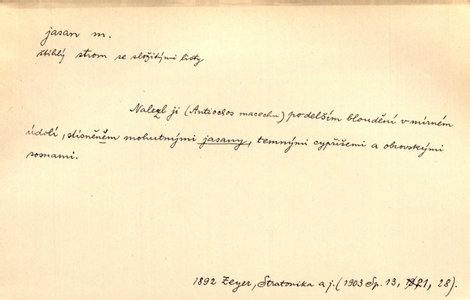 jasan m.
štíhlý strom se složitými listy
Nalezl ji (Antiochos macechu) po delším bloudění v mírném
údolí, stíněném mohutnými jasany, temnými cypřišemi a obrovskými
sosnami.
1892 Zeyer, Stratonika a j. (1903 Sp. 13, 1, 28).